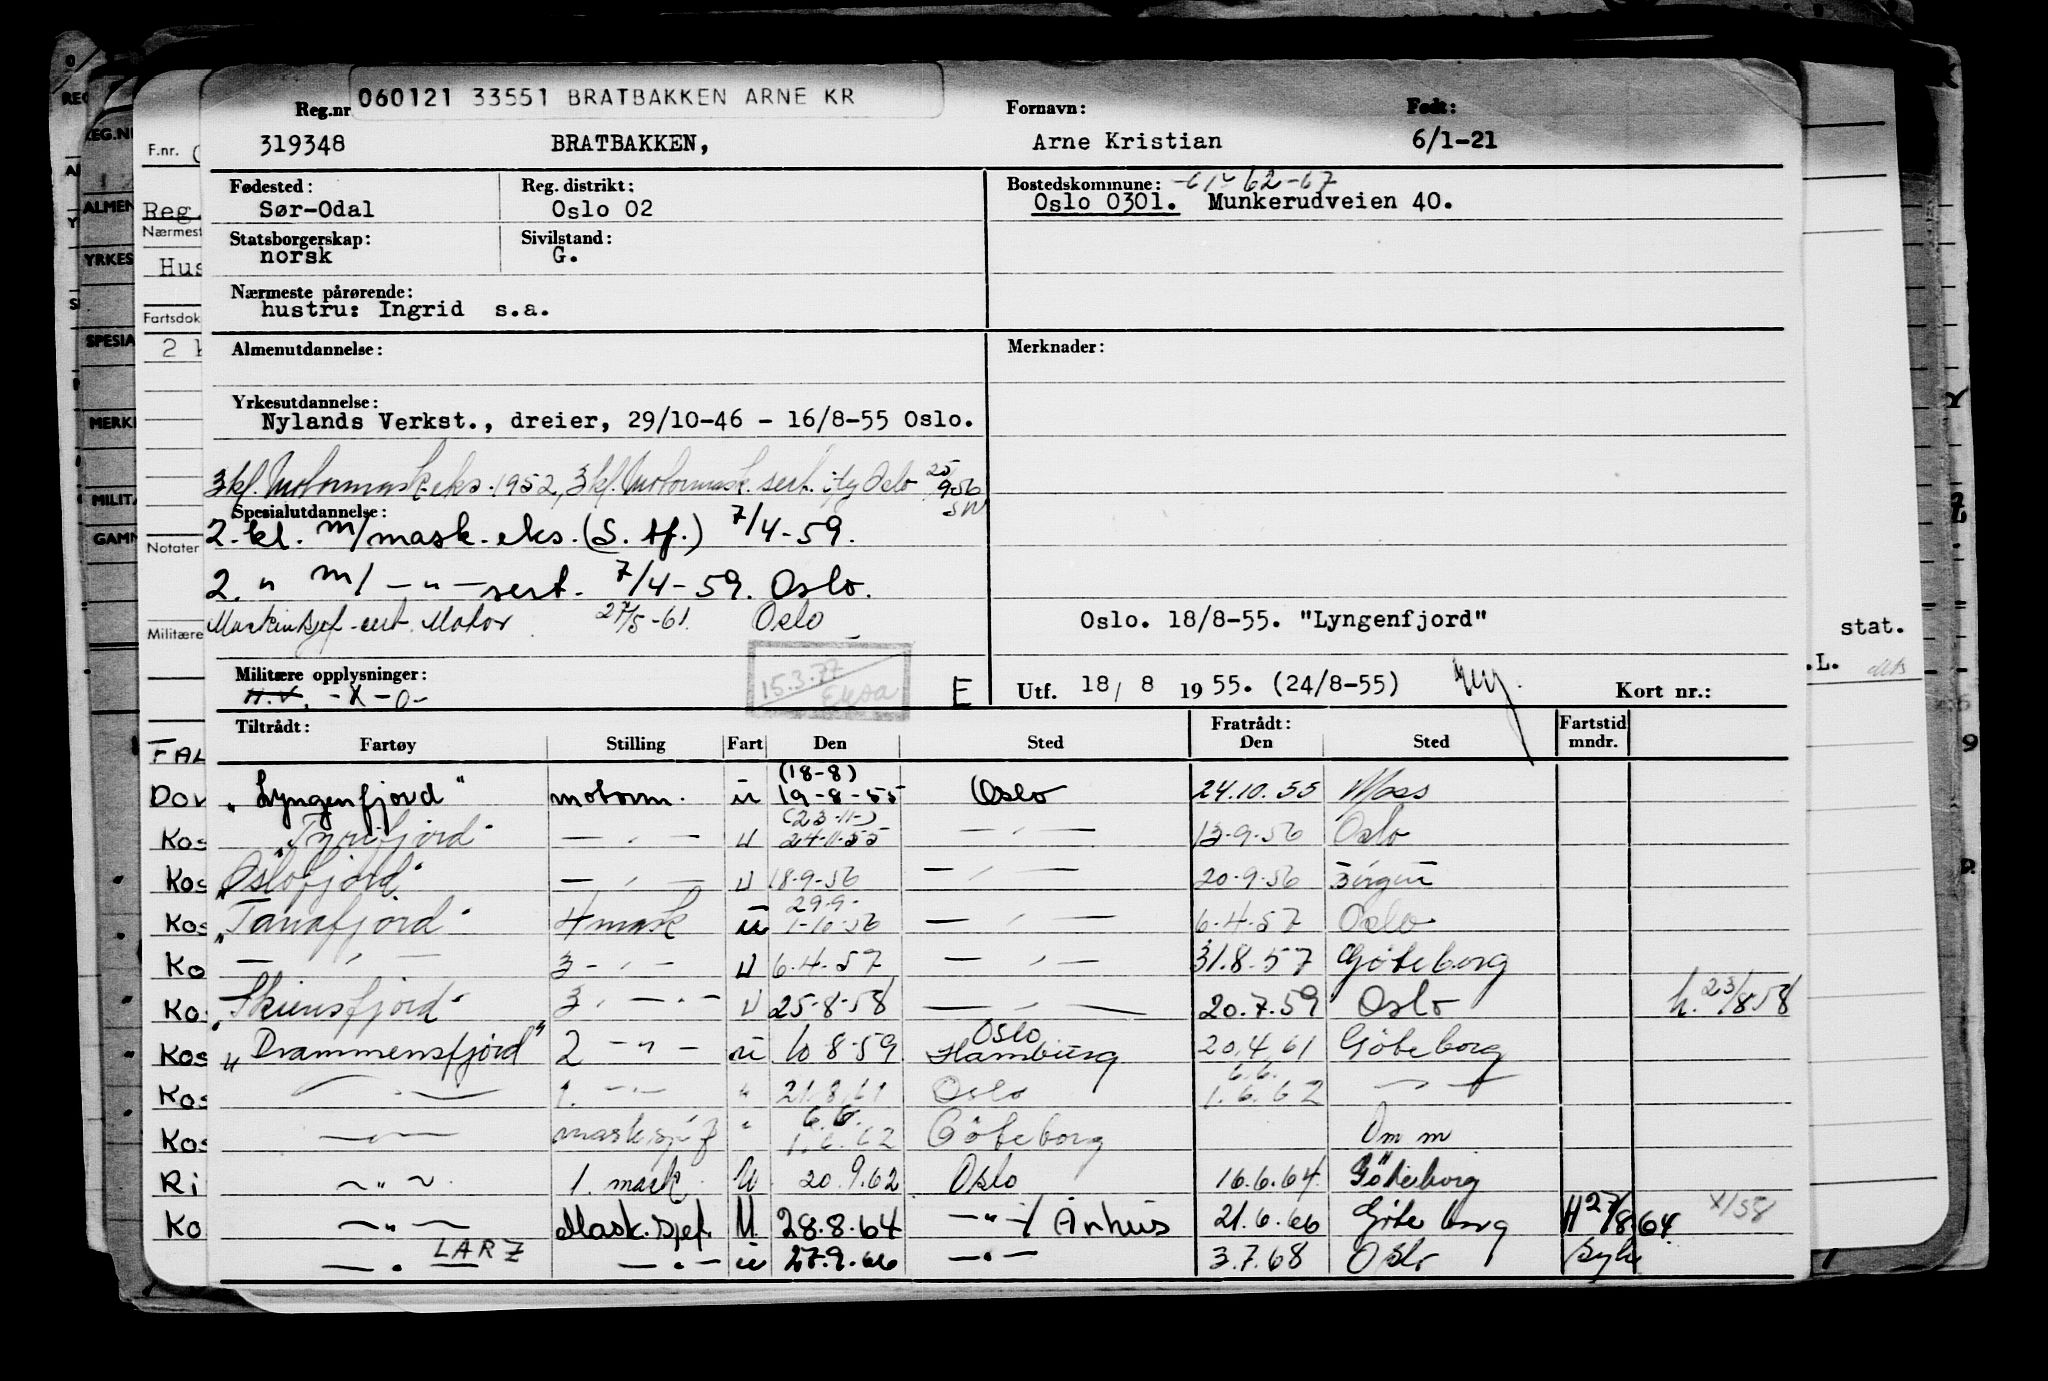 060121 33551 BRATBAKKEN ARNE KR
Reg.nr Fornavn: Født:
319348 BRATBAKKEN, Arne Kristian 6/1-21
Fødested: Reg. distrikt: Bostedskommune: 62-67
Sør-Odal Oslo 02 Oslo 0301. Munkerudveien 40.
Statsborgerskap: Sivilstand:
norsk G.
Nærmeste pårørende:
hustru: Ingrid s.a.
Almenutdannelse: Merknader:
Yrkesutdannelse:
Nylands Verkst., dreier, 29/10-46 - 16/8-55 Oslo.
3 kl. Motormask.eks. 1952, 3 kl. Motormask. sert. Oslo 25/9-56
Spesialutdannelse:
2. kl. m/mask. eks. (S. tf.) 7/4-59.
2. " m/ — " — sert. 7/4-59. Oslo.
Maskinsjef-sert. Motor 5-61 Oslo
Oslo. 18/8-55. "Lyngenfjord"
Militære opplysninger: 15.3.77
H.V. -X-0- E Utf. 18/ 8 1955. (24/8-55) Kort nr.:
Tiltrådt: Fratrådt: Fartstid
Fartøy Stilling Fart Den Sted Den Sted mndr.
(18-8)
"Lyngenfjord" motorm. u 19-8-55 Oslo 24.10.55 Moss
(23-11-)
"Tyrifjord" — " — u 24-11-55 — " — 13-9-56 Oslo
"Oslofjord" — " — u 18-9-56 — " — 20-9-56 Bergen
29-9-
"Tanafjord" 4 mask u 1-10-56 — " — 6-4-57 Oslo
— " — 3 - " - u 6-4-57 — " — 31.8.57 Göteborg
"Skiensfjord" 3. — " — u 25-8-58 — " — 20.7.59 Oslo h. 23/8 58
Oslo
"Drammensfjord" 2 — " — u 10-8-59 Hamburg 20.4.61 Göteborg
6.6.
— " — 1. — " — " 21.8.61 Oslo 1.6.62 — " —
6.6.
— " — masksjef " 1.6.62 Göteborg Om m
— " — 1. mask. U 20.9.62 Oslo 16.6.64 Göteborg
— " — Mask.sjef. U 28.8.64 — " — / Århus 21.6.66 Göteborg H 27/8 64. X/58
— " — LARZ — " — u 27.9.66 — " — 3.7.68 Oslo Syke
F.nr.
Reg.
Nærmest
Hus
Fartsdok
Notater
Militære
FAL
Dov
Kos
Kos
Kos
Ko
Ko
Kos
Kos
Kos
Ri
Ko
REG.NR
ALMEN
YRKES
SPESIA
MERK
MILITÆ
GAMM
stat.
.L.